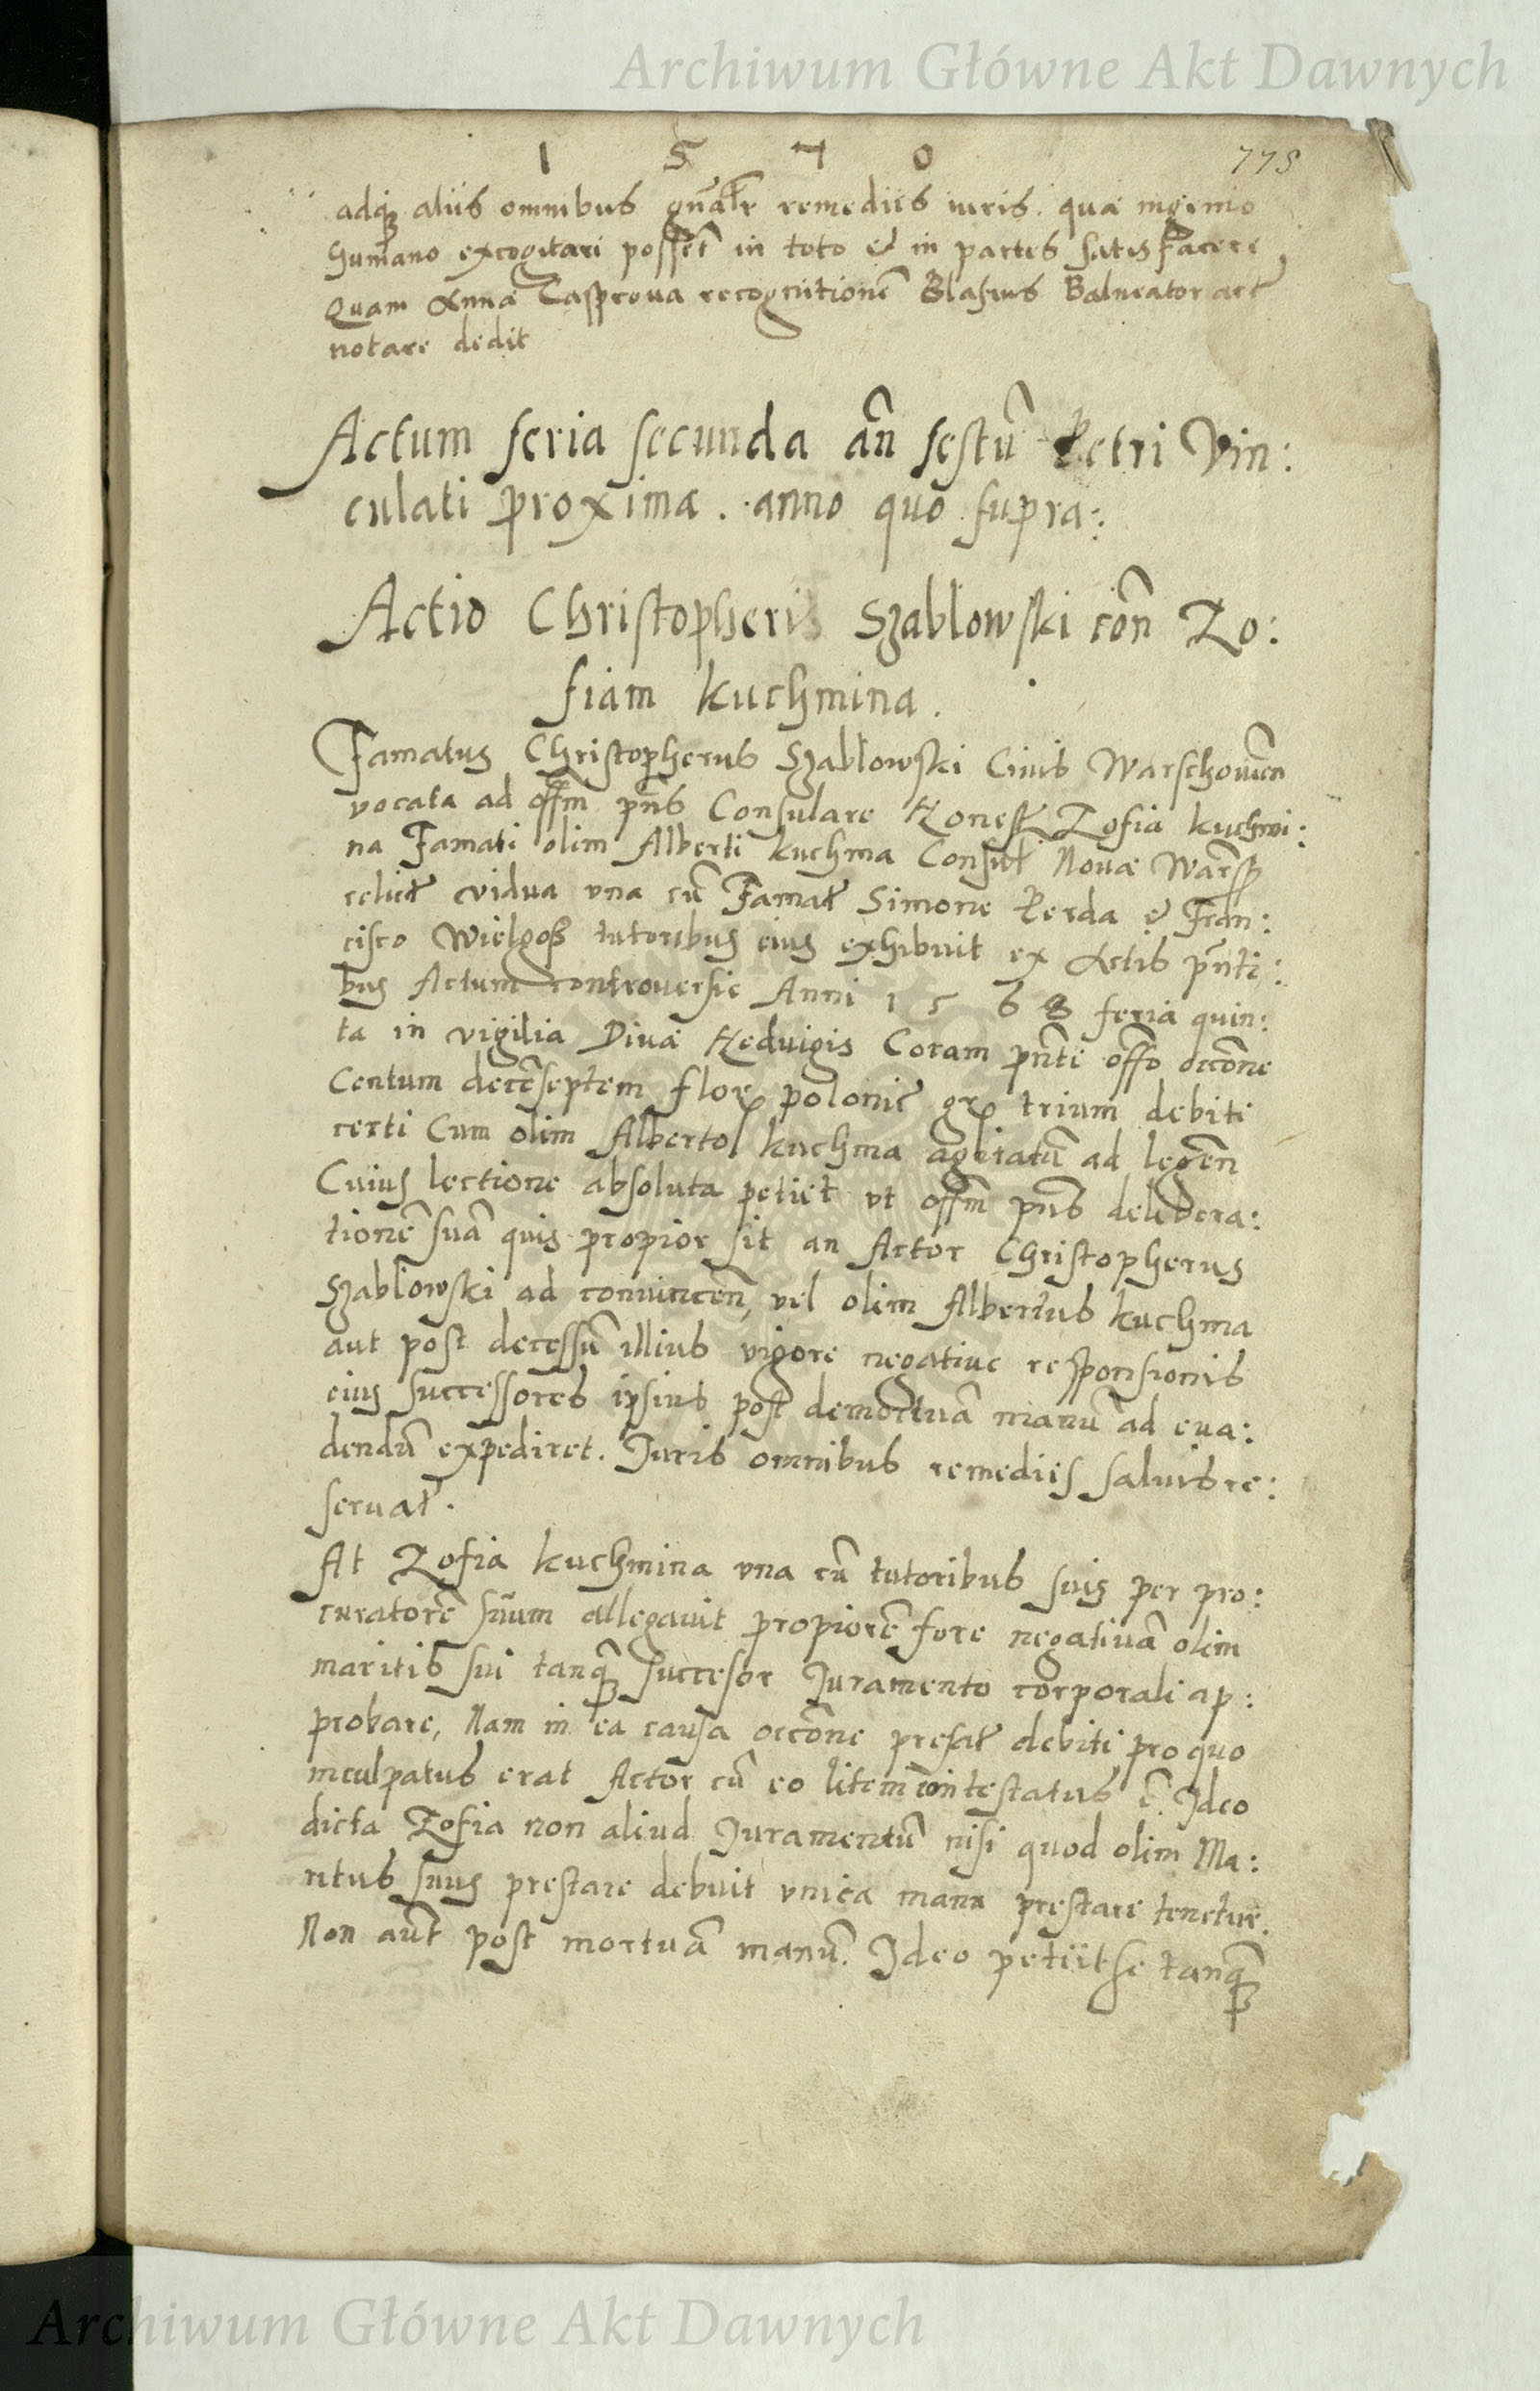 Archiwum Główne Akt Dawnych
1 5 7 0
775
adq3 aliis omnibus gnalr remediis iuris. quæ ingenio
humano excogitari possēt in toto & in partes satisfacere
Quam Anna Casprova recognitionē Blasius Balneator act
notare dedit
Actum feria secunda an̄ festū Petri Vin:
culati proxima. anno quo supra:
Actio Christopheri Szablowski con̄ Zo:
fiam Kuchmina.
Famatus Christopherus Szablowski Civis Warschovien̄
vocata ad offm̄ pn̄s Consulare Honest Zofia Kuchmi:
na Famati olim Alberti Kuchma Consul Novæ Warsz
relict vidua una cū Famat Simone Perda & Fran:
cisco Wielgoß tutoribus eius exhibuit ex Actis pn̄ti:
bus Actum controversie Anni 1 5 6 8 feria quin:
ta in vigilia Divæ Hedvigis Coram pn̄te offo occōne
Centum decēseptem flor polonic gr trium debiti
certi Cum olim Alberto Kuchma agitatū ad legēn
Cuius lectione absoluta petiit ut offm̄ pn̄s delibera:
tionē suā quis propior sit an Actor Christopherus
Szablowski ad convincen̄, vel olim Albertus Kuchma
aut post decessū illius vigore negative responsionis
eius successores ipsius post demortuā manū ad eva:
dendū expediret. Juris omnibus remediis salvis re:
servat.
At Zofia Kuchmina una cū tutoribus suis per pro:
curatorē suum allegavit propiorē fore negativā olim
maritis sui tanq̄ succesor Juramento corporali ap:
probare, Nam in ea causa occōne prefat debiti pro quo
inculpatus erat Actor cū eo litem contestatus ē. Ideo
dicta Zofia non aliud Juramentū nisi quod olim Ma:
ritus suus prestare debuit unica manu prestare tenetur.
Non aūt post mortuā manū. Ideo petiit se tanq̄
Archiwum Główne Akt Dawnych